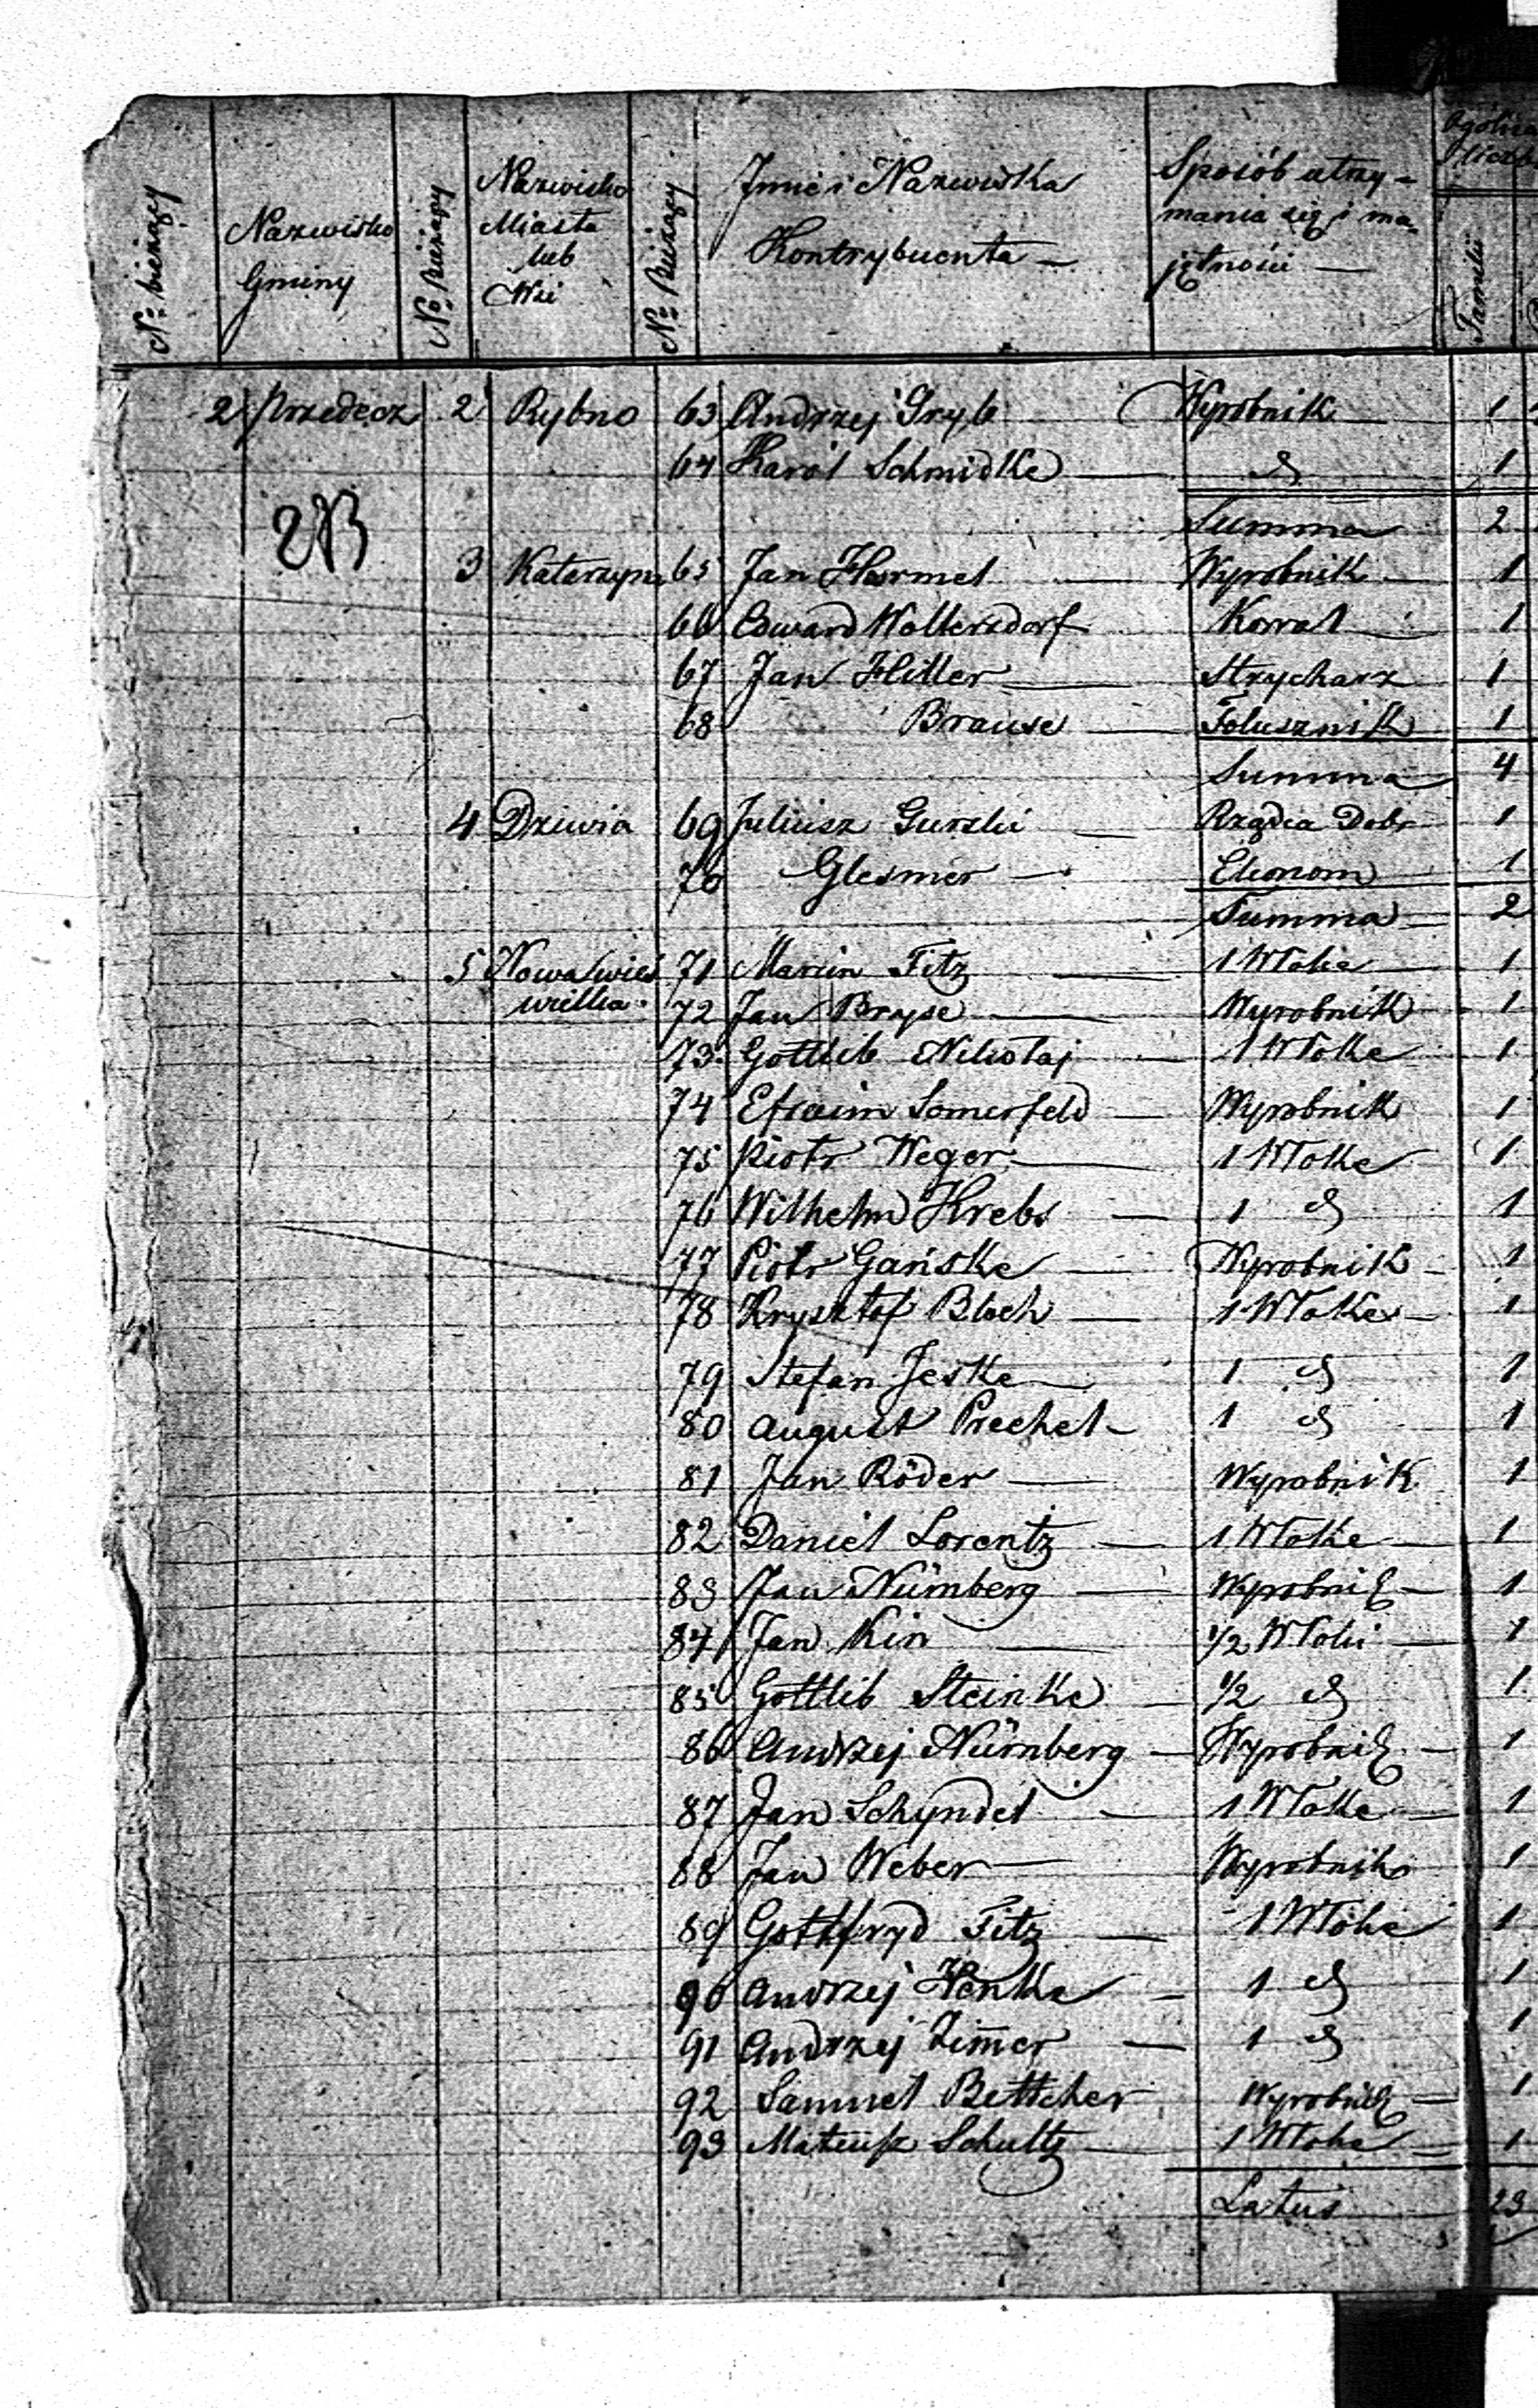 Ogólna
liczba
No bieżący
Nazwisko
Gminy
No Bieżący
Nazwisko
Miasta
lub
Wsi
No Bieżący
Jmie i Nazwiska
Kontrybuenta —
Sposób utrzy-
mania się i ma-
jętności —
Familii
2 Przedecz 2 Rybno 63 Andrzej Gryb Wyrobnik — 1
64 Karol Schmidke — d 1
Summa 2
3 Katarzyna 65 Jan Harmel — Wyrobnik — 1
66 Edward Woltersdorf Kowal — 1
67 Jan Hiller — Strycharz 1
68 Brause — Folusznik 1
Summa 4
4 Dziwia 69 Juliusz Gurski — Rządca Dobr 1
70 Glesmer — Ekonom 1
Summa — 2
5 Nowawieś 71 Marcin Fitz — 1 Włoka — 1
wielka 72 Jan Bryse — Wyrobnik 1
73 Gottlieb Nikolaj — 1 Włoke 1
74 Efraim Somerfeld — Wyrobnik 1
75 Piotr Weger — 1 Włoke 1
76 Wilhelm Krebs — 1 d 1
77 Piotr Gańske — Wyrobnik — 1
78 Krysztof Bloch — 1 Włoke — 1
79 Stefan Jeske — 1 d 1
80 August Prechel — 1 d 1
81 Jan Röder — Wyrobnik 1
82 Daniel Lorentz — 1 Włoke — 1
83 Jan Nürnberg — Wyrobnik — 1
84 Jan Kin — 1/2 Włoki — 1
85 Gottlib Steinke — 1/2 d 1
86 Andrzej Nürnberg — Wyrobnik — 1
87 Jan Schyndel — 1 Włoke — 1
88 Jan Weber — Wyrobnik 1
89 Gottfryd Fitz — 1 Włoke 1
90 Andrzej Henke — 1 d 1
91 Andrzej Zimer — 1 d 1
92 Samuel Bettcher Wyrobnik — 1
93 Mateusz Schultz — 1 Włoke — 1
Latus 23